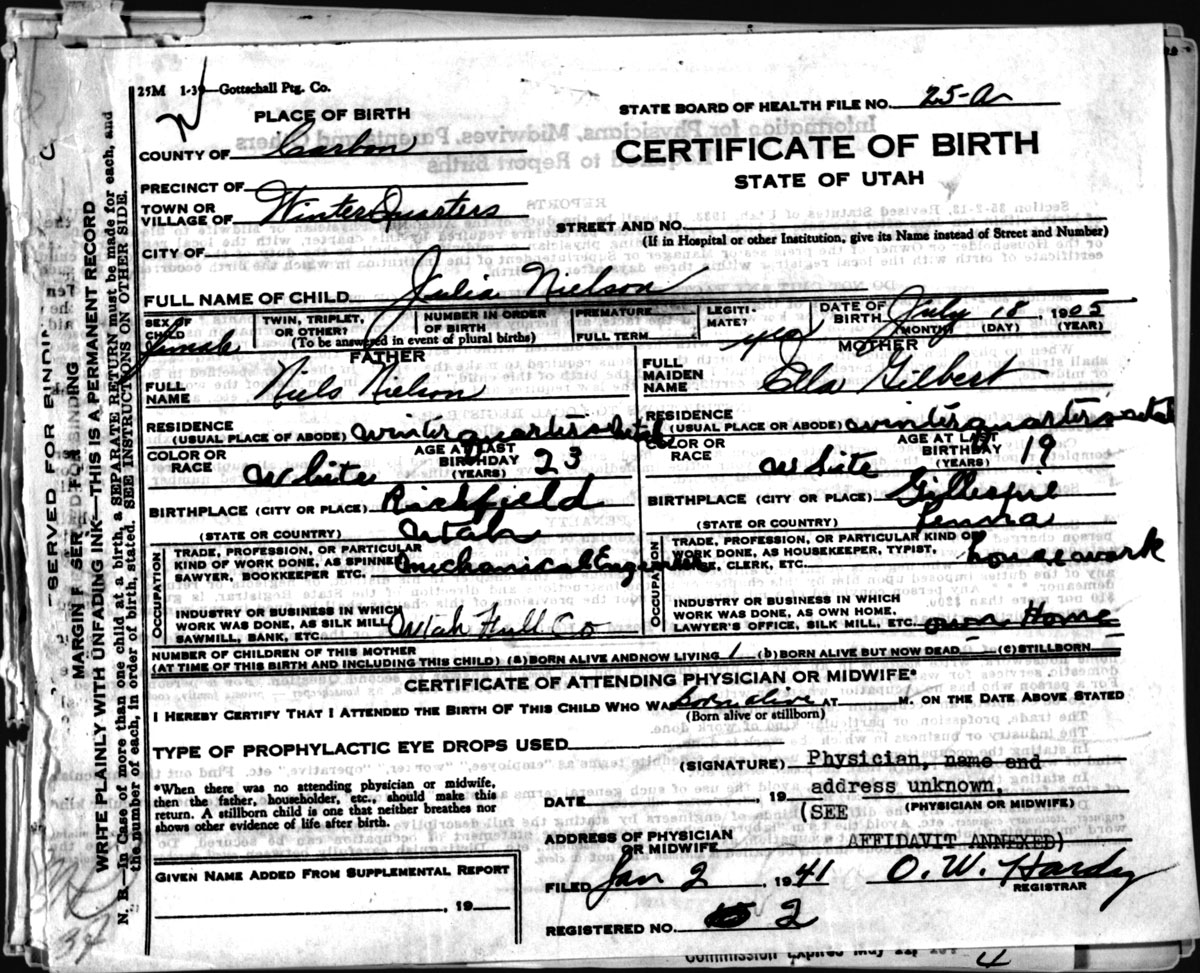 25M 1-39—Gottschall Ptg. Co.
PLACE OF BIRTH
COUNTY OF Carbon
PRECINCT OF
TOWN OR
VILLAGE OF Winter Quarters
CITY OF
STATE BOARD OF HEALTH FILE NO. 25-a
CERTIFICATE OF BIRTH
STATE OF UTAH
STREET AND NO.
(If in Hospital or other Institution, give its Name instead of Street and Number)
FULL NAME OF CHILD Julia Nielson
SEX OF
CHILD female
TWIN, TRIPLET,
OR OTHER?
NUMBER IN ORDER
OF BIRTH
(To be answered in event of plural births)
PREMATURE
FULL TERM
LEGITI-
MATE? yes
DATE OF
BIRTH July 18, 1905
(MONTH) (DAY) (YEAR)
FATHER
FULL
NAME Niels Nielson
RESIDENCE
(USUAL PLACE OF ABODE) winter quarters Utah
COLOR OR
RACE White
AGE AT LAST
BIRTHDAY 23
(YEARS)
BIRTHPLACE (CITY OR PLACE) Richfield
(STATE OR COUNTRY) Utah
OCCUPATION
TRADE, PROFESSION, OR PARTICULAR
KIND OF WORK DONE, AS SPINNER,
SAWYER, BOOKKEEPER ETC. mechanical Engineer
INDUSTRY OR BUSINESS IN WHICH
WORK WAS DONE, AS SILK MILL,
SAWMILL, BANK, ETC. Utah Full Co
MOTHER
FULL
MAIDEN
NAME Ella Gilbert
RESIDENCE
(USUAL PLACE OF ABODE) winter quarters utah
COLOR OR
RACE White
AGE AT LAST
BIRTHDAY 19
(YEARS)
BIRTHPLACE (CITY OR PLACE) Gillespie
(STATE OR COUNTRY) Penna
OCCUPATION
TRADE, PROFESSION, OR PARTICULAR KIND OF
WORK DONE, AS HOUSEKEEPER, TYPIST,
NURSE, CLERK, ETC. housework
INDUSTRY OR BUSINESS IN WHICH
WORK WAS DONE, AS OWN HOME,
LAWYER'S OFFICE, SILK MILL, ETC. own Home
NUMBER OF CHILDREN OF THIS MOTHER
(AT TIME OF THIS BIRTH AND INCLUDING THIS CHILD) (a) BORN ALIVE AND NOW LIVING 1 (b) BORN ALIVE BUT NOW DEAD (c) STILLBORN
CERTIFICATE OF ATTENDING PHYSICIAN OR MIDWIFE*
I HEREBY CERTIFY THAT I ATTENDED THE BIRTH OF THIS CHILD WHO WAS born alive AT M. ON THE DATE ABOVE STATED
(Born alive or stillborn)
TYPE OF PROPHYLACTIC EYE DROPS USED
*When there was no attending physician or midwife,
then the father, householder, etc., should make this
return. A stillborn child is one that neither breathes nor
shows other evidence of life after birth.
(SIGNATURE) Physician, name and
DATE , 19 address unknown.
(SEE (PHYSICIAN OR MIDWIFE)
ADDRESS OF PHYSICIAN
OR MIDWIFE AFFIDAVIT ANNEXED)
GIVEN NAME ADDED FROM SUPPLEMENTAL REPORT
, 19
FILED Jan 2, 1941 O. W. Hardy
REGISTRAR
REGISTERED NO. 2
MARGIN RESERVED FOR BINDING
WRITE PLAINLY WITH UNFADING INK—THIS IS A PERMANENT RECORD
N. B.—In Case of more than one child at a birth, a SEPARATE RETURN must be made for each, and
the number of each, in order of birth, stated. SEE INSTRUCTIONS ON OTHER SIDE.